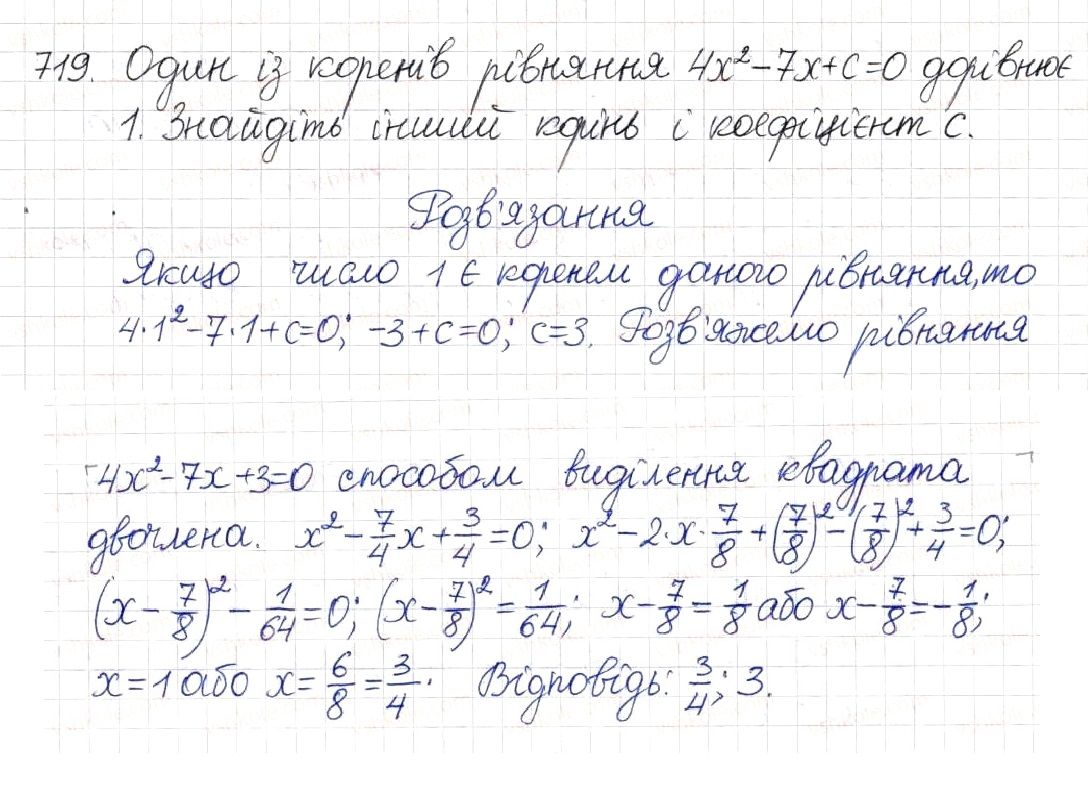 719. Один із коренів рівняння 4x²-7x+c=0 дорівнює
1. Знайдіть інший корінь і коефіцієнт c.
Розв'язання
Якщо число 1 є коренем даного рівняння, то
4·1²-7·1+c=0; -3+c=0; c=3. Розв'яжемо рівняння
4x²-7x+3=0 способом виділення квадрата
двочлена. x²-7/4x+3/4=0; x²-2·x·7/8+(7/8)²-(7/8)²+3/4=0;
(x-7/8)²-1/64=0; (x-7/8)²=1/64; x-7/8=1/8 або x-7/8=-1/8;
x=1 або x=6/8=3/4. Відповідь: 3/4; 3.